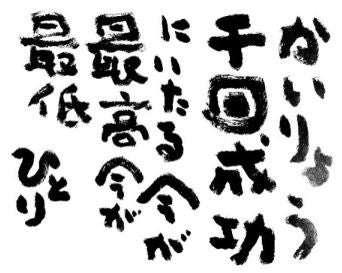 かいりょう
千回成功
にいたる今が
最高今が
最低
ひとり